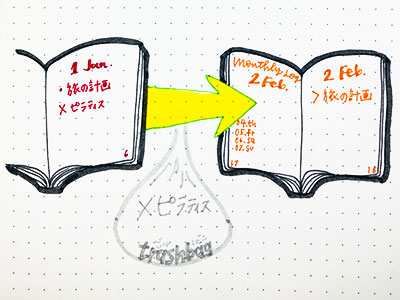 1 Jan.
・旅の計画
×ピラティス
6
Monthly Log
2 Feb.
04.th
05.fr
06.sa
17
2 Feb.
＞旅の計画
18
×ピラティス
trashbag